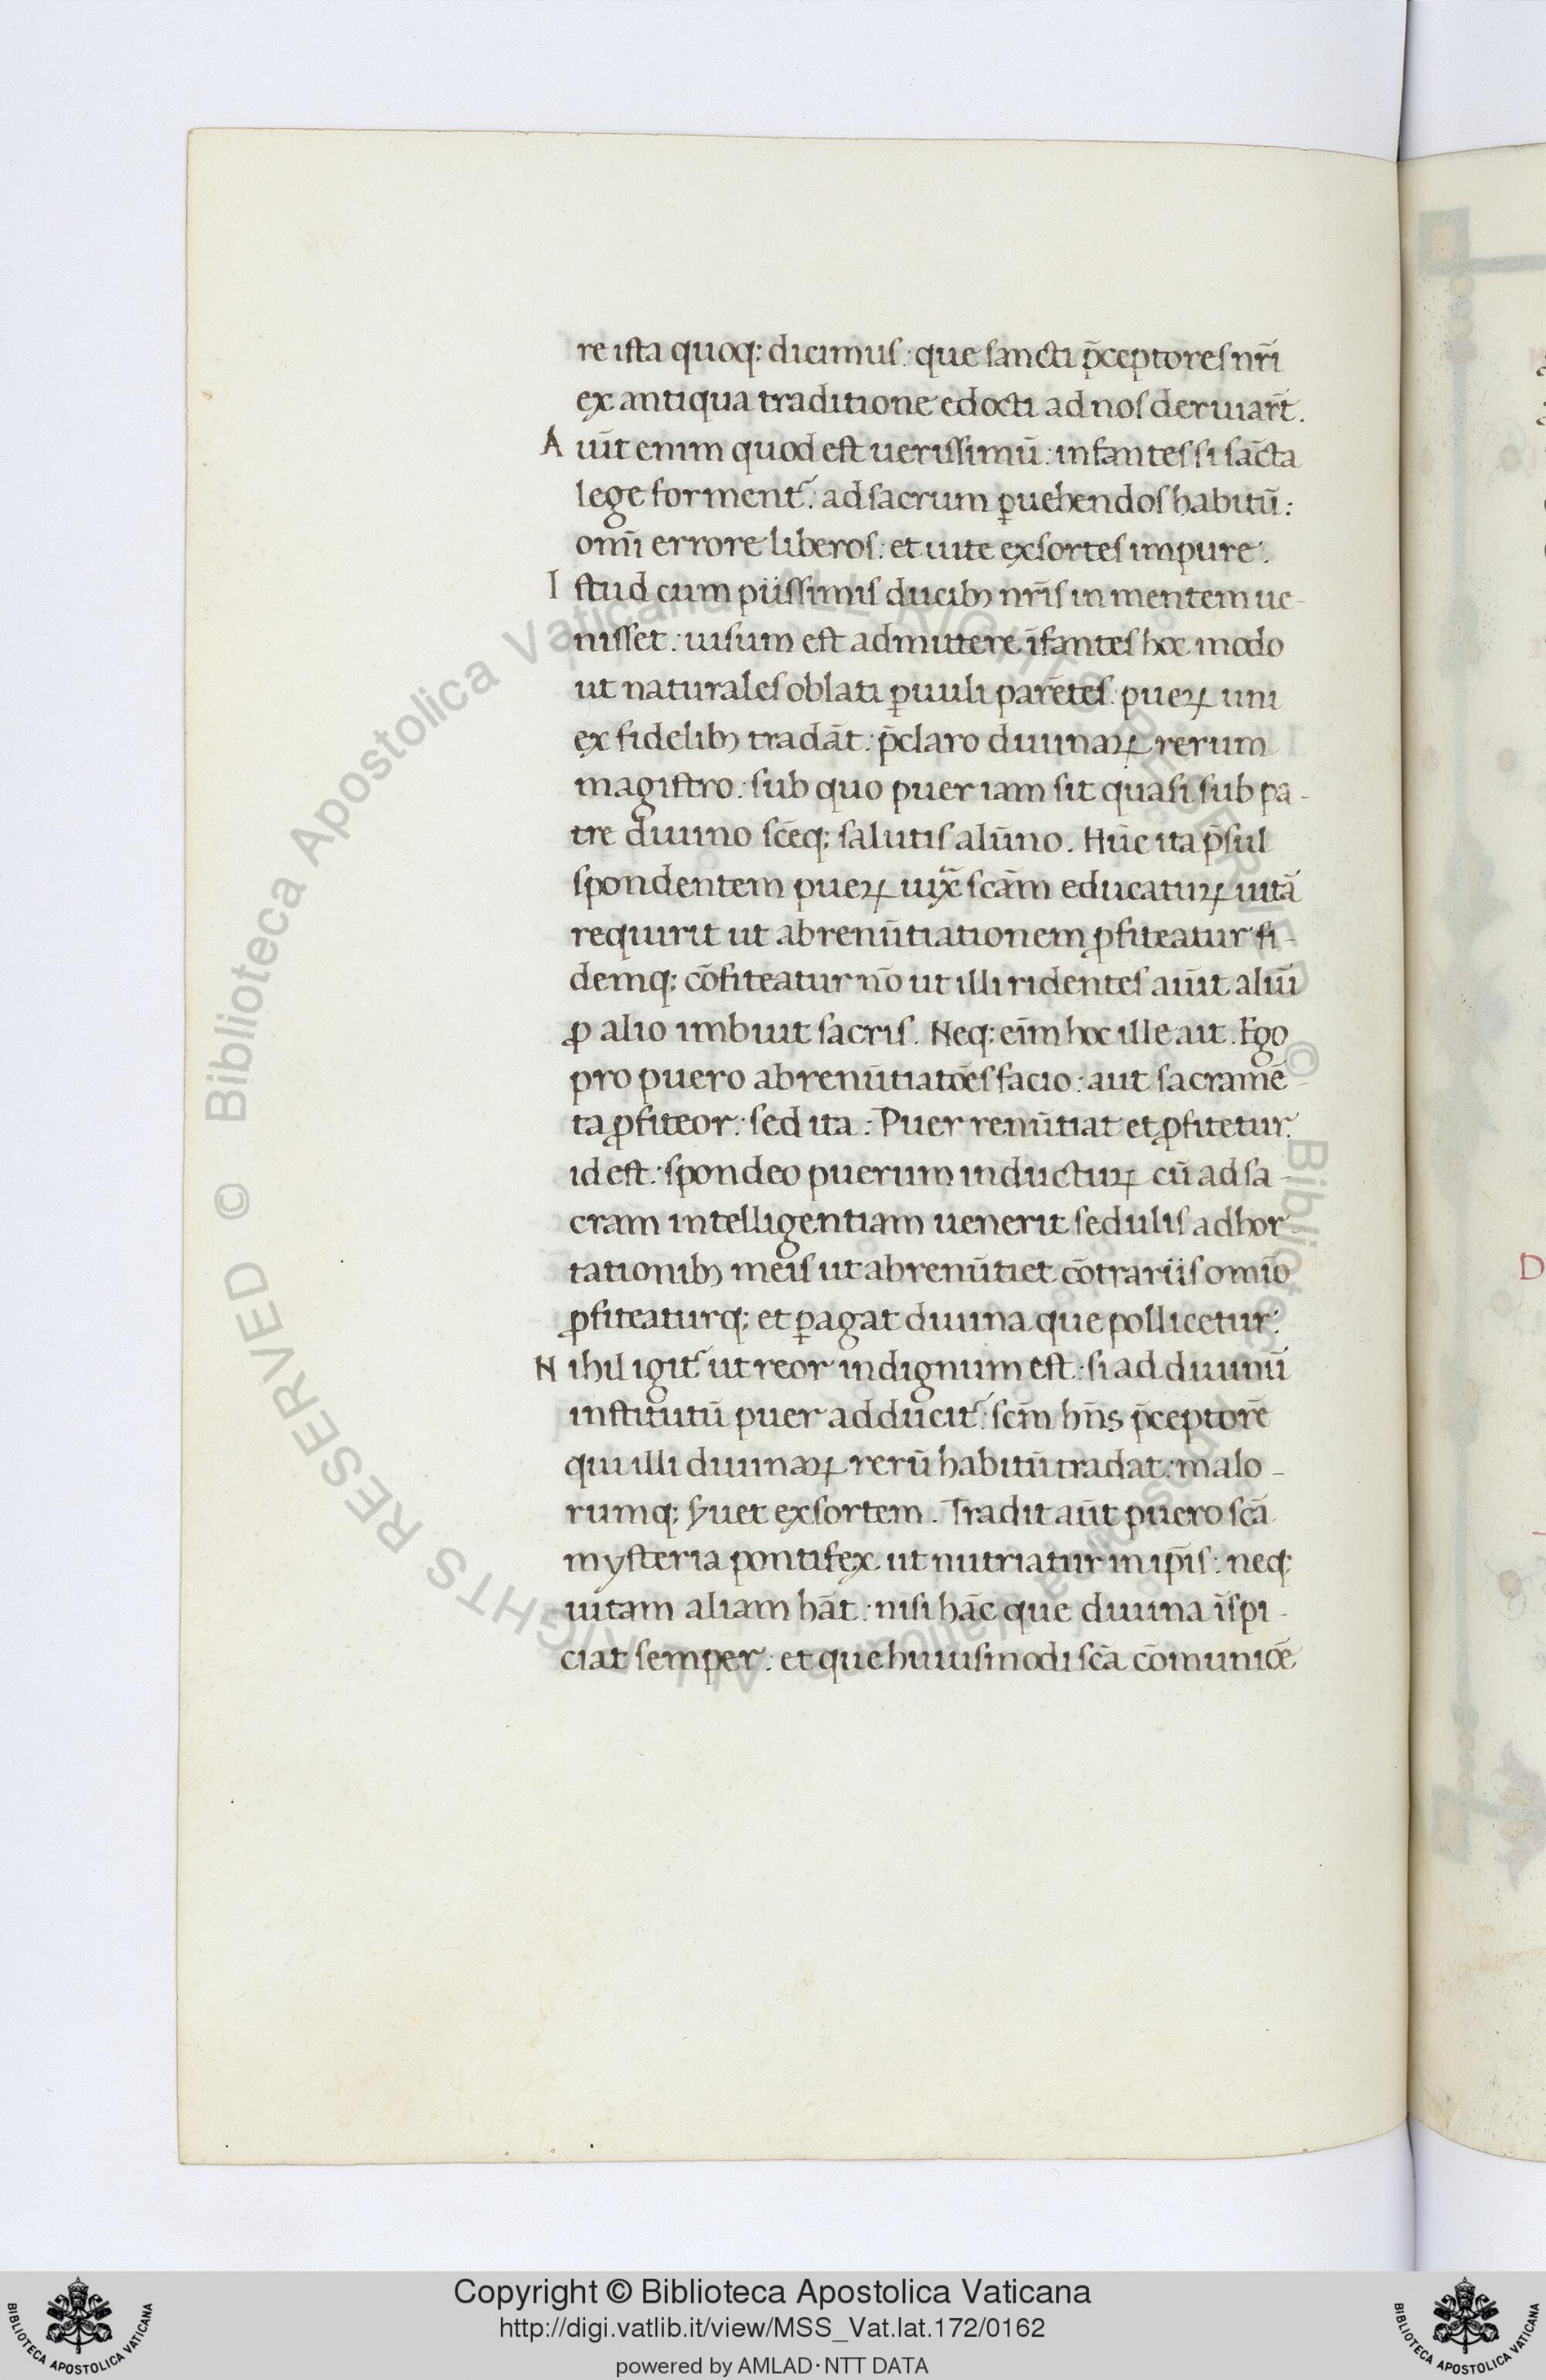 re ista quoq; dicimus: que sancti p̄ceptores nr̄i
ex antiqua traditione edocti ad nos deriuar̄t.
A iūt enim quod est uerissimū: infantes si sācta
lege forment᷑: ad sacrum ꝑuehendos habitū:
omī errore liberos: et uite exsortes impure.
I stud cum piissimis ducibꝫ nr̄is in mentem ue-
nisset: uisum est admittere īfantes hoc modo
ut naturales oblati ꝑuuli parētes: pueꝝ uni
ex fidelibꝫ tradāt: p̄claro diuinaꝝ rerum
magistro: sub quo puer iam sit quasi sub pa-
tre diuino scēq; salutis alūno. Hūc ita p̄sul
spondentem pueꝝ iuxᷓ scām educatuꝝ uitā
requirit ut abrenūtiationem ꝓfiteatur fi-
demq; cōfiteatur nō ut illi ridentes aiūt aliū
ꝓ alio imbuit sacris. Neq; eīm hoc ille ait. Ego
pro puero abrenūtiatōes facio: aut sacramē-
ta ꝓfiteor: sed ita: Puer renūtiat et ꝓfitetur.
id est: spondeo puerum inductuꝝ cū ad sa-
cram intelligentiam uenerit sedulis adhor-
tationibꝫ meis ut abrenūtiet cōtrariis omīo
ꝓfiteaturq; et ꝑagat diuina que pollicetur.
N ihil igit᷑ ut reor indignum est: si ad diuinū
institutū puer adducit᷑: scm̄ hn̄s p̄ceptorē
qui illi diuinaꝝ rerū habitū tradat: malo-
rumq; s̄uet exsortem. Tradit aūt puero scā
mysteria pontifex ut nutriatur in ip̄is: neq;
uitam aliam hāt: nisi hāc que diuina īspi-
ciat semper: et que huiusmodi scā cōmunicē
Copyright © Biblioteca Apostolica Vaticana
http://digi.vatlib.it/view/MSS_Vat.lat.172/0162
powered by AMLAD·NTT DATA